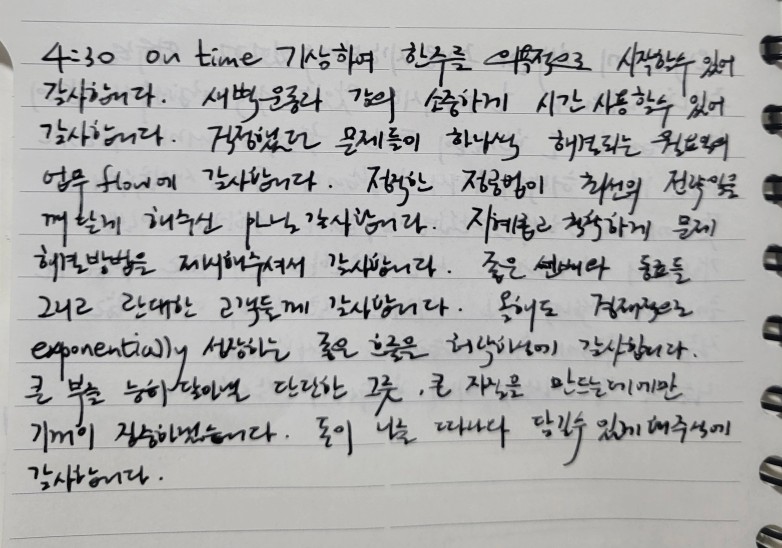 4:30 on time 기상하여 한주를 의욕적으로 시작할수 있어
감사합니다. 새벽 운동과 강의 소중하게 시간 사용할수 있어
감사합니다. 걱정했던 문제들이 하나씩 해결되는 월요일의
업무 flow에 감사합니다. 정직한 정공법이 최선의 전략임을
깨닫게 해주신 감사합니다. 지혜롭고 침착하게 문제
해결방법을 제시해주셔서 감사합니다. 좋은 선배와 동료들
그리고 관대한 고객들께 감사합니다. 올해도 경제적으로
exponentially 성장하는 좋은 흐름을 허락하심에 감사합니다.
큰 부를 능히 담아낼 단단한 그릇, 큰 자신을 만드는데에만
기꺼이 집중하겠습니다. 돈이 나를 따라다 담길수 있게 해주심에
감사합니다.